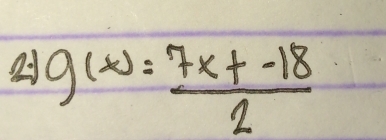 2) g(x) = 7x + -18
2